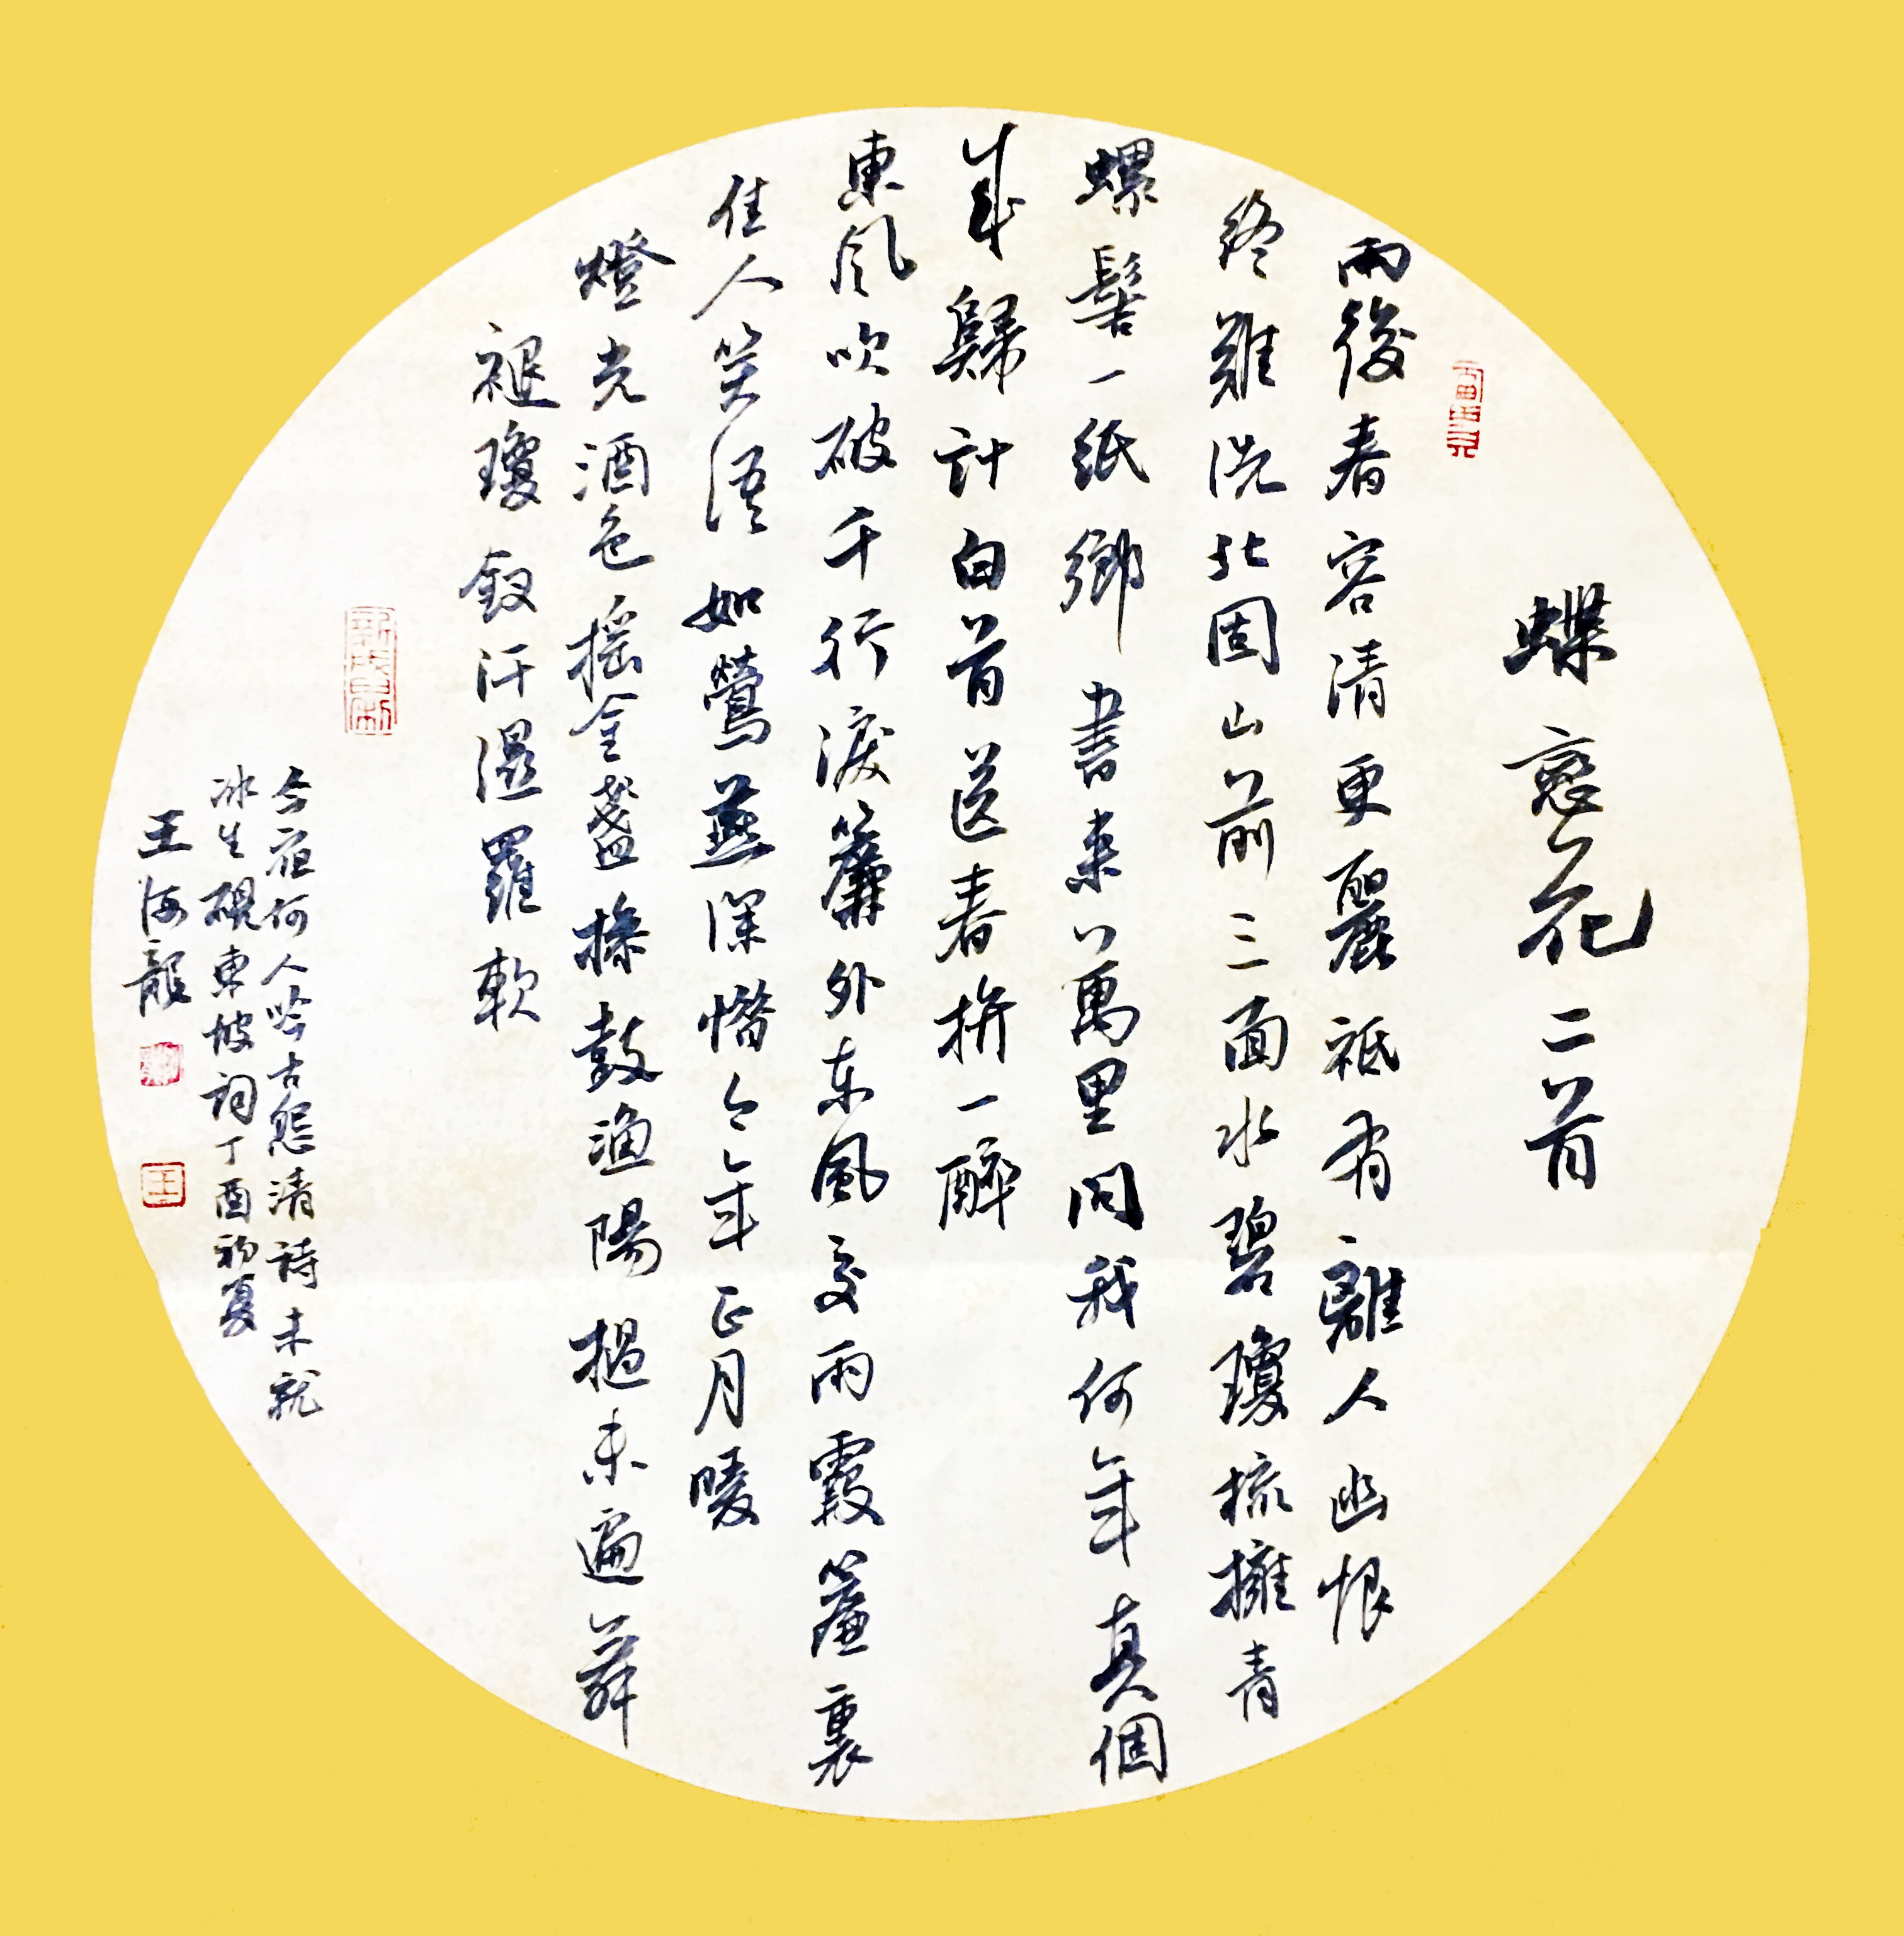 蝶戀花二首
雨後春容清更麗祗有離人幽恨
終難洗北固山前三面水碧瓊梳擁青
螺髻一紙鄉書來萬里問我何年真個
成歸計白首送春拚一醉
東風吹破千行淚簾外東風交雨霰簾裏
佳人笑語如鶯燕深惜今年正月暖
燈光酒色搖金盞摻鼓漁陽撾未遍舞
褪瓊釵汗濕羅軟
今宿何人吟古怨清詩未就
冰生硯東坡詞丁酉初夏
王海龍
王